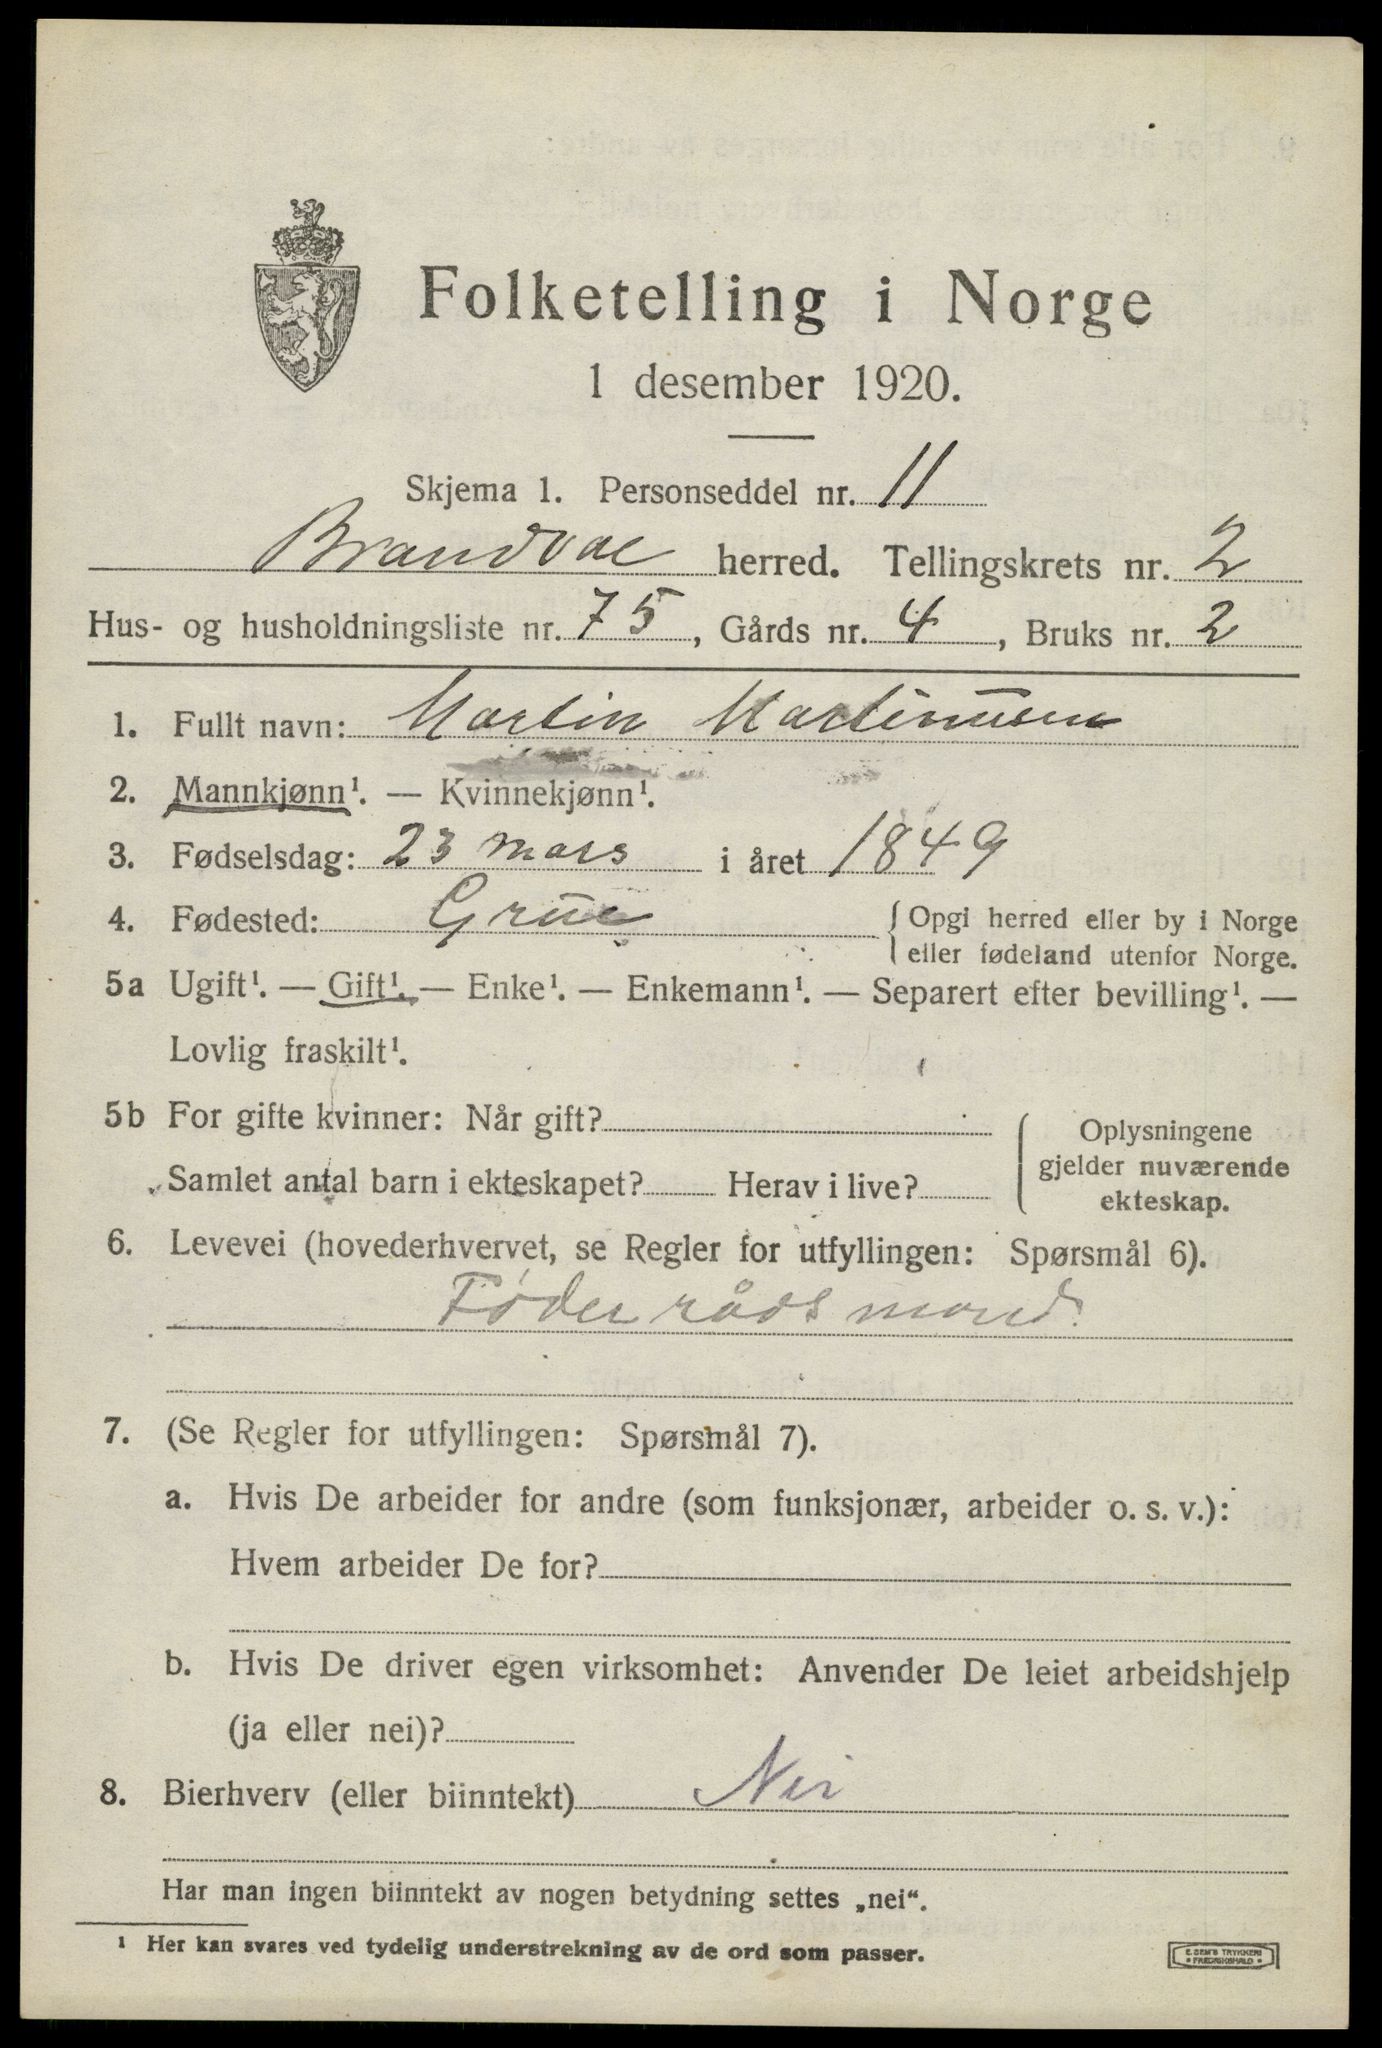 Folketelling i Norge
1 desember 1920.
Skjema 1. Personseddel nr. 11
Brandval herred. Tellingskrets nr. 2
Hus- og husholdningsliste nr. 75, Gårds nr. 4, Bruks nr. 2
1. Fullt navn: Martin Martinusen
2. Mannkjønn¹. — Kvinnekjønn¹.
3. Fødselsdag: 23 mars i året 1849
4. Fødested: Grue {Opgi herred eller by i Norge
eller fødeland utenfor Norge.
5a Ugift¹. — Gift¹. — Enke¹. — Enkemann¹. — Separert efter bevilling¹. —
Lovlig fraskilt¹.
5b For gifte kvinner: Når gift?
Samlet antal barn i ekteskapet? Herav i live?
Oplysningene
gjelder nuværende
ekteskap.
6. Levevei (hovederhvervet, se Regler for utfyllingen: Spørsmål 6).
Føderådsmand
7. (Se Regler for utfyllingen: Spørsmål 7).
a. Hvis De arbeider for andre (som funksjonær, arbeider o. s. v.):
Hvem arbeider De for?
b. Hvis De driver egen virksomhet: Anvender De leiet arbeidshjelp
(ja eller nei)?
8. Bierhverv (eller biinntekt) Nei
Har man ingen biinntekt av nogen betydning settes „nei“.
¹ Her kan svares ved tydelig understrekning av de ord som passer.
E. SEM'S TRYKKERI
• FREDRIKSHALD •